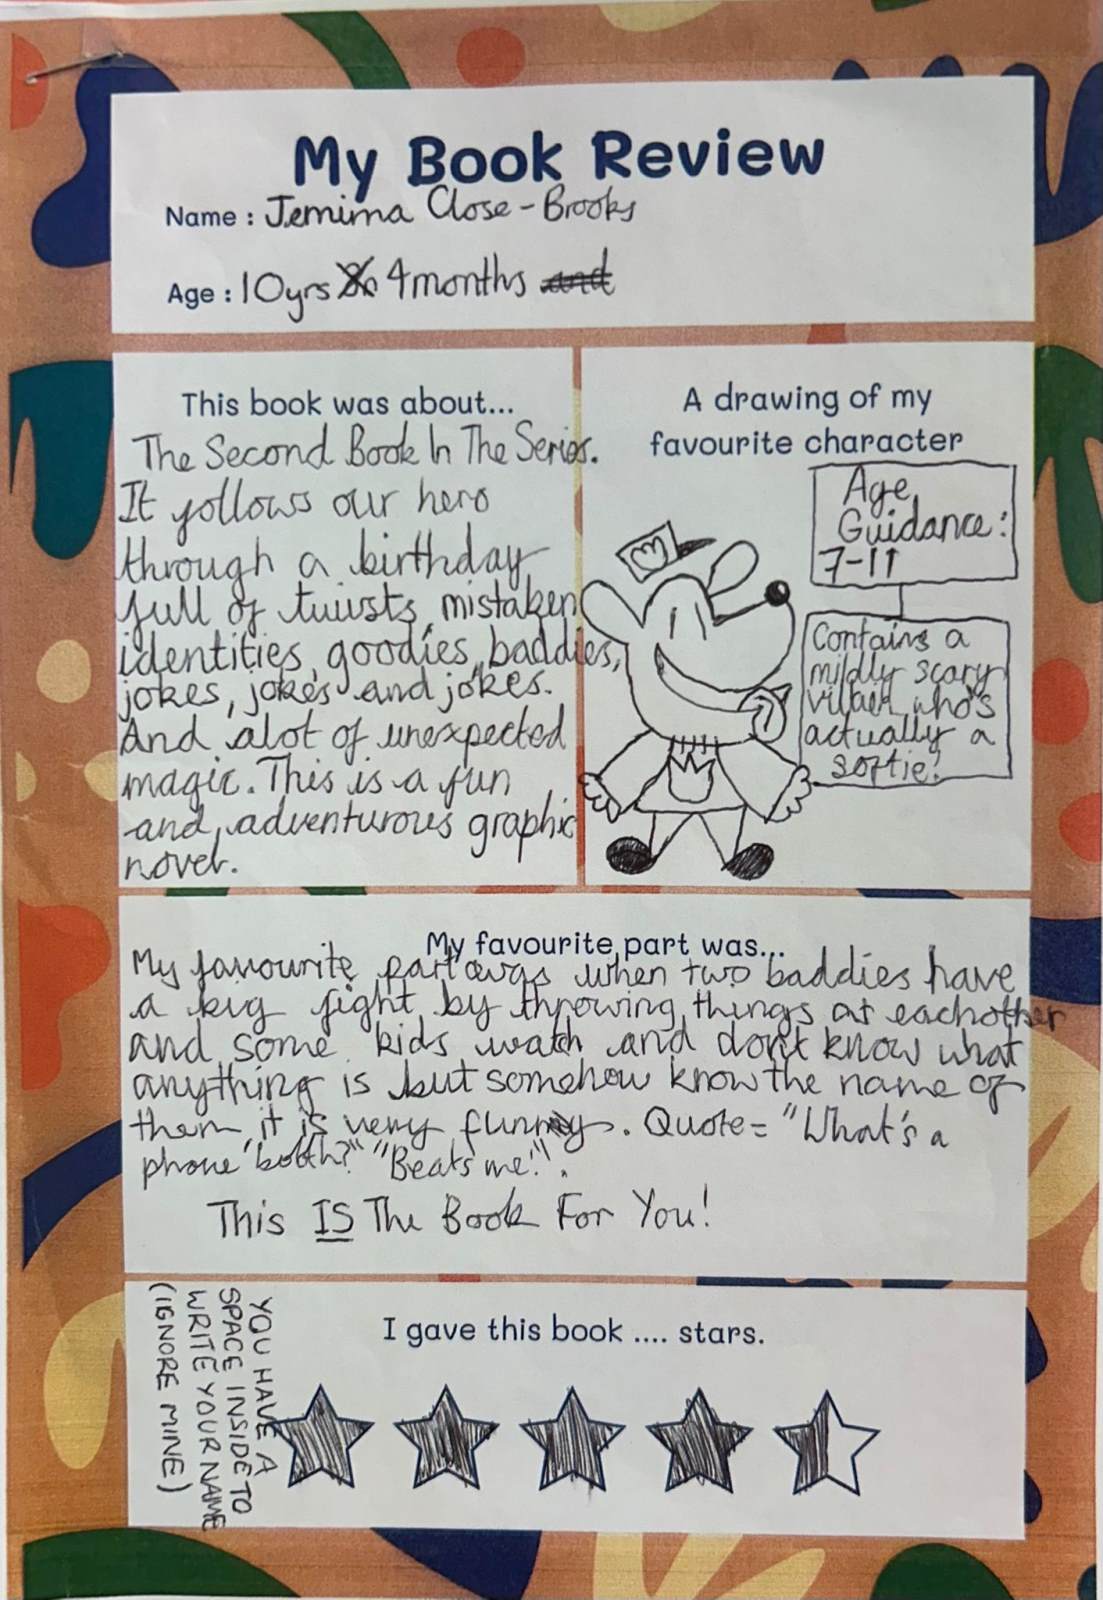 My Book Review
Name : Jemima Close-Brooks
Age : 10yrs 4months and
This book was about...
The Second Book In The Series.
It follows our hero
through a birthday
full of twists, mistaken
identities, goodies, baddies,
jokes, jokes and jokes.
And alot of unexpected
magic. This is a fun
and adventurous graphic
novel.
A drawing of my
favourite character
Age
Guidance:
7-11
Contains a
mildly scary
villaen who's
actually a
softie!
My favourite part was...
My favourite part was when two baddies have
a big fight by throwing things at eachother
and some kids watch and don't know what
anything is but somehow know the name of
them it is very funny. Quote= "What's a
phone booth?" "Beats me!".
This IS The Book For You!
I gave this book .... stars.
YOU HAVE A
SPACE INSIDE TO
WRITE YOUR NAME
(IGNORE MINE)